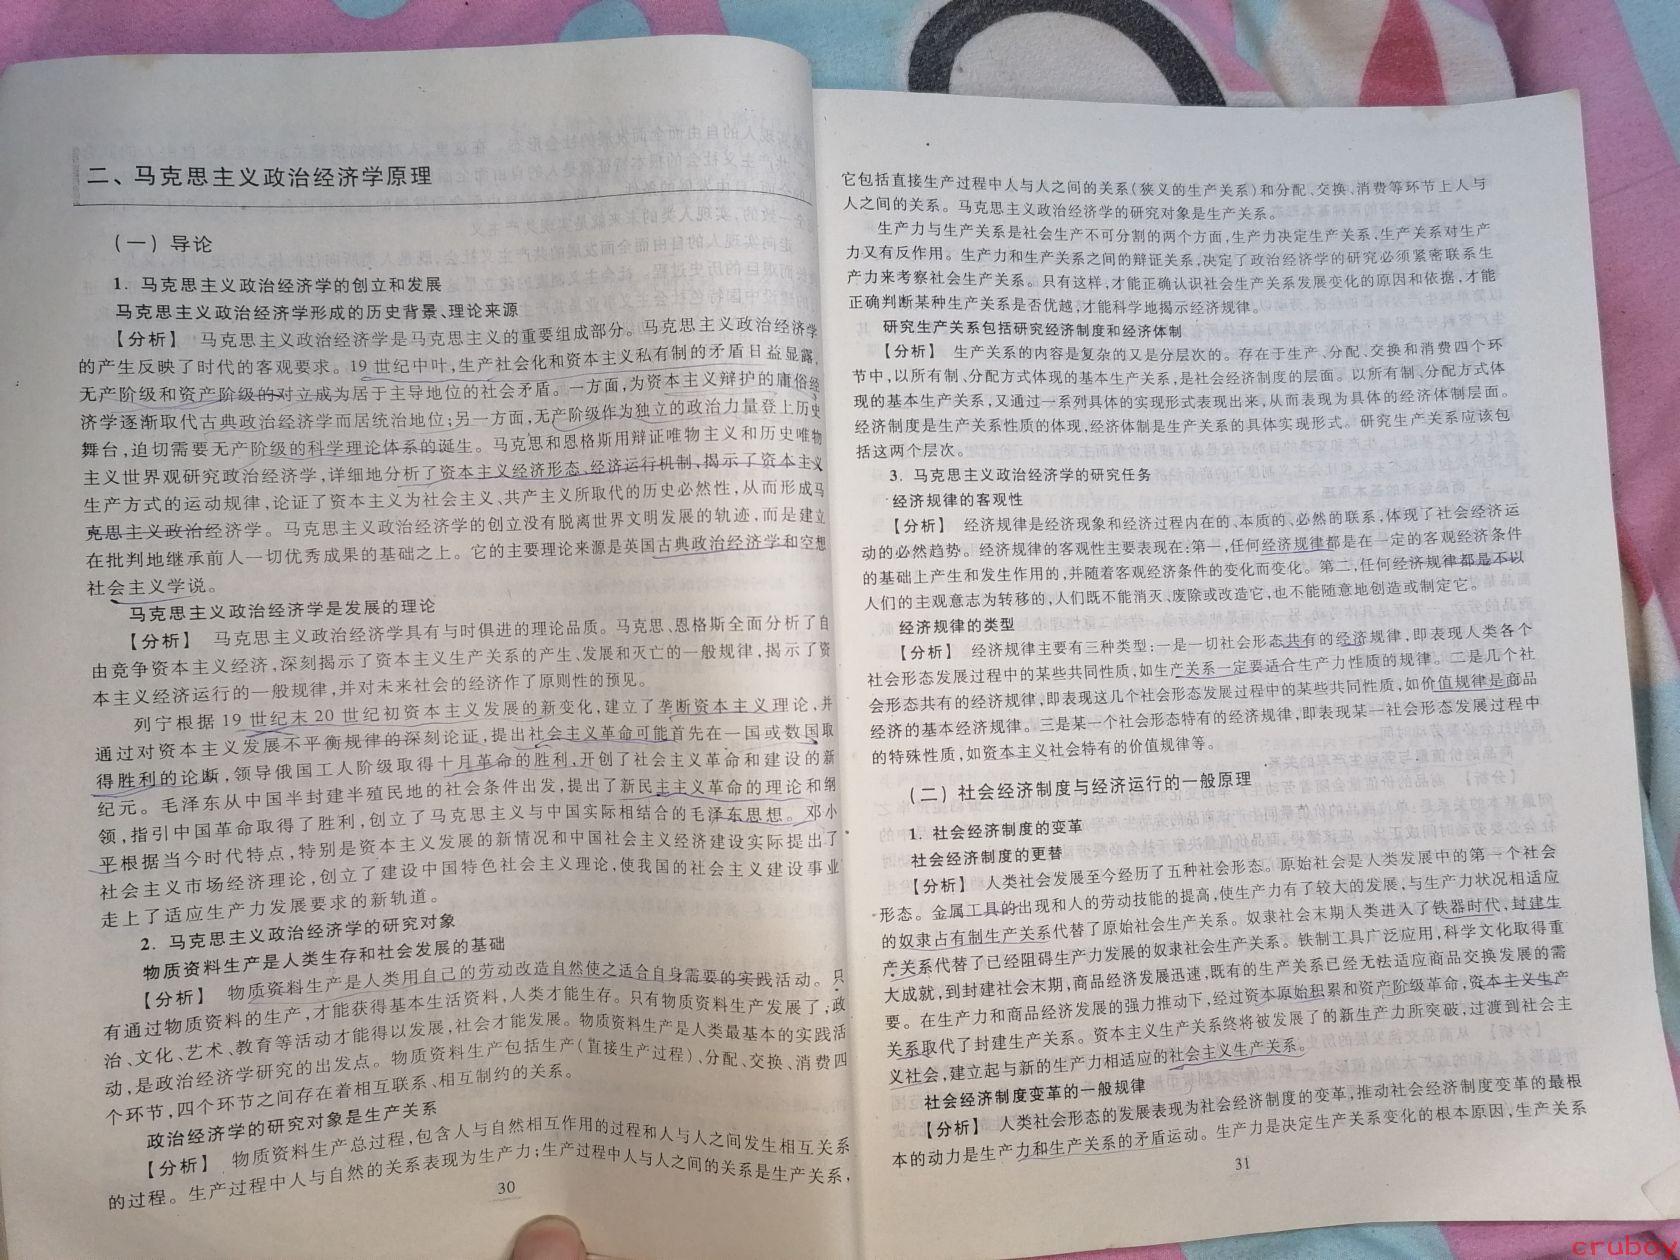 二、马克思主义政治经济学原理
（一）导论
1. 马克思主义政治经济学的创立和发展
马克思主义政治经济学形成的历史背景、理论来源
【分析】 马克思主义政治经济学是马克思主义的重要组成部分。马克思主义政治经济学
的产生反映了时代的客观要求。19世纪中叶,生产社会化和资本主义私有制的矛盾日益显露,
无产阶级和资产阶级的对立成为居于主导地位的社会矛盾。一方面,为资本主义辩护的庸俗经
济学逐渐取代古典政治经济学而居统治地位;另一方面,无产阶级作为独立的政治力量登上历史
舞台,迫切需要无产阶级的科学理论体系的诞生。马克思和恩格斯用辩证唯物主义和历史唯物
主义世界观研究政治经济学,详细地分析了资本主义经济形态、经济运行机制,揭示了资本主义
生产方式的运动规律,论证了资本主义为社会主义、共产主义所取代的历史必然性,从而形成马
克思主义政治经济学。马克思主义政治经济学的创立没有脱离世界文明发展的轨迹,而是建立
在批判地继承前人一切优秀成果的基础之上。它的主要理论来源是英国古典政治经济学和空想
社会主义学说。
马克思主义政治经济学是发展的理论
【分析】 马克思主义政治经济学具有与时俱进的理论品质。马克思、恩格斯全面分析了自
由竞争资本主义经济,深刻揭示了资本主义生产关系的产生、发展和灭亡的一般规律,揭示了资
本主义经济运行的一般规律,并对未来社会的经济作了原则性的预见。
列宁根据19世纪末20世纪初资本主义发展的新变化,建立了垄断资本主义理论,并
通过对资本主义发展不平衡规律的深刻论证,提出社会主义革命可能首先在一国或数国取
得胜利的论断,领导俄国工人阶级取得十月革命的胜利,开创了社会主义革命和建设的新
纪元。毛泽东从中国半封建半殖民地的社会条件出发,提出了新民主主义革命的理论和纲
领,指引中国革命取得了胜利,创立了马克思主义与中国实际相结合的毛泽东思想。邓小
平根据当今时代特点,特别是资本主义发展的新情况和中国社会主义经济建设实际提出了
社会主义市场经济理论,创立了建设中国特色社会主义理论,使我国的社会主义建设事业
走上了适应生产力发展要求的新轨道。
2. 马克思主义政治经济学的研究对象
物质资料生产是人类生存和社会发展的基础
【分析】 物质资料生产是人类用自己的劳动改造自然使之适合自身需要的实践活动。只
有通过物质资料的生产,才能获得基本生活资料,人类才能生存。只有物质资料生产发展了,政
治、文化、艺术、教育等活动才能得以发展,社会才能发展。物质资料生产是人类最基本的实践活
动,是政治经济学研究的出发点。物质资料生产包括生产(直接生产过程)、分配、交换、消费四
个环节,四个环节之间存在着相互联系、相互制约的关系。
政治经济学的研究对象是生产关系
【分析】 物质资料生产总过程,包含人与自然相互作用的过程和人与人之间发生相互关系
的过程。生产过程中人与自然的关系表现为生产力;生产过程中人与人之间的关系是生产关系,
30
它包括直接生产过程中人与人之间的关系(狭义的生产关系)和分配、交换、消费等环节上人与
人之间的关系。马克思主义政治经济学的研究对象是生产关系。
生产力与生产关系是社会生产不可分割的两个方面,生产力决定生产关系,生产关系对生产
力又有反作用。生产力和生产关系之间的辩证关系,决定了政治经济学的研究必须紧密联系生
产力来考察社会生产关系。只有这样,才能正确认识社会生产关系发展变化的原因和依据,才能
正确判断某种生产关系是否优越,才能科学地揭示经济规律。
研究生产关系包括研究经济制度和经济体制
【分析】 生产关系的内容是复杂的又是分层次的。存在于生产、分配、交换和消费四个环
节中,以所有制、分配方式体现的基本生产关系,是社会经济制度的层面。以所有制、分配方式体
现的基本生产关系,又通过一系列具体的实现形式表现出来,从而表现为具体的经济体制层面。
经济制度是生产关系性质的体现,经济体制是生产关系的具体实现形式。研究生产关系应该包
括这两个层次。
3. 马克思主义政治经济学的研究任务
经济规律的客观性
【分析】 经济规律是经济现象和经济过程内在的、本质的、必然的联系,体现了社会经济运
动的必然趋势。经济规律的客观性主要表现在:第一,任何经济规律都是在一定的客观经济条件
的基础上产生和发生作用的,并随着客观经济条件的变化而变化。第二,任何经济规律都是不以
人们的主观意志为转移的,人们既不能消灭、废除或改造它,也不能随意地创造或制定它。
经济规律的类型
【分析】 经济规律主要有三种类型:一是一切社会形态共有的经济规律,即表现人类各个
社会形态发展过程中的某些共同性质,如生产关系一定要适合生产力性质的规律。二是几个社
会形态共有的经济规律,即表现这几个社会形态发展过程中的某些共同性质,如价值规律是商品
经济的基本经济规律。三是某一个社会形态特有的经济规律,即表现某一社会形态发展过程中
的特殊性质,如资本主义社会特有的价值规律等。
（二）社会经济制度与经济运行的一般原理
1. 社会经济制度的变革
社会经济制度的更替
【分析】 人类社会发展至今经历了五种社会形态。原始社会是人类发展中的第一个社会
形态。金属工具的出现和人的劳动技能的提高,使生产力有了较大的发展,与生产力状况相适应
的奴隶占有制生产关系代替了原始社会生产关系。奴隶社会末期人类进入了铁器时代,封建生
产关系代替了已经阻碍生产力发展的奴隶社会生产关系。铁制工具广泛应用,科学文化取得重
大成就,到封建社会末期,商品经济发展迅速,既有的生产关系已经无法适应商品交换发展的需
要。在生产力和商品经济发展的强力推动下,经过资本原始积累和资产阶级革命,资本主义生产
关系取代了封建生产关系。资本主义生产关系终将被发展了的新生产力所突破,过渡到社会主
义社会,建立起与新的生产力相适应的社会主义生产关系。
社会经济制度变革的一般规律
【分析】 人类社会形态的发展表现为社会经济制度的变革,推动社会经济制度变革的最根
本的动力是生产力和生产关系的矛盾运动。生产力是决定生产关系变化的根本原因,生产关系
31
crubox